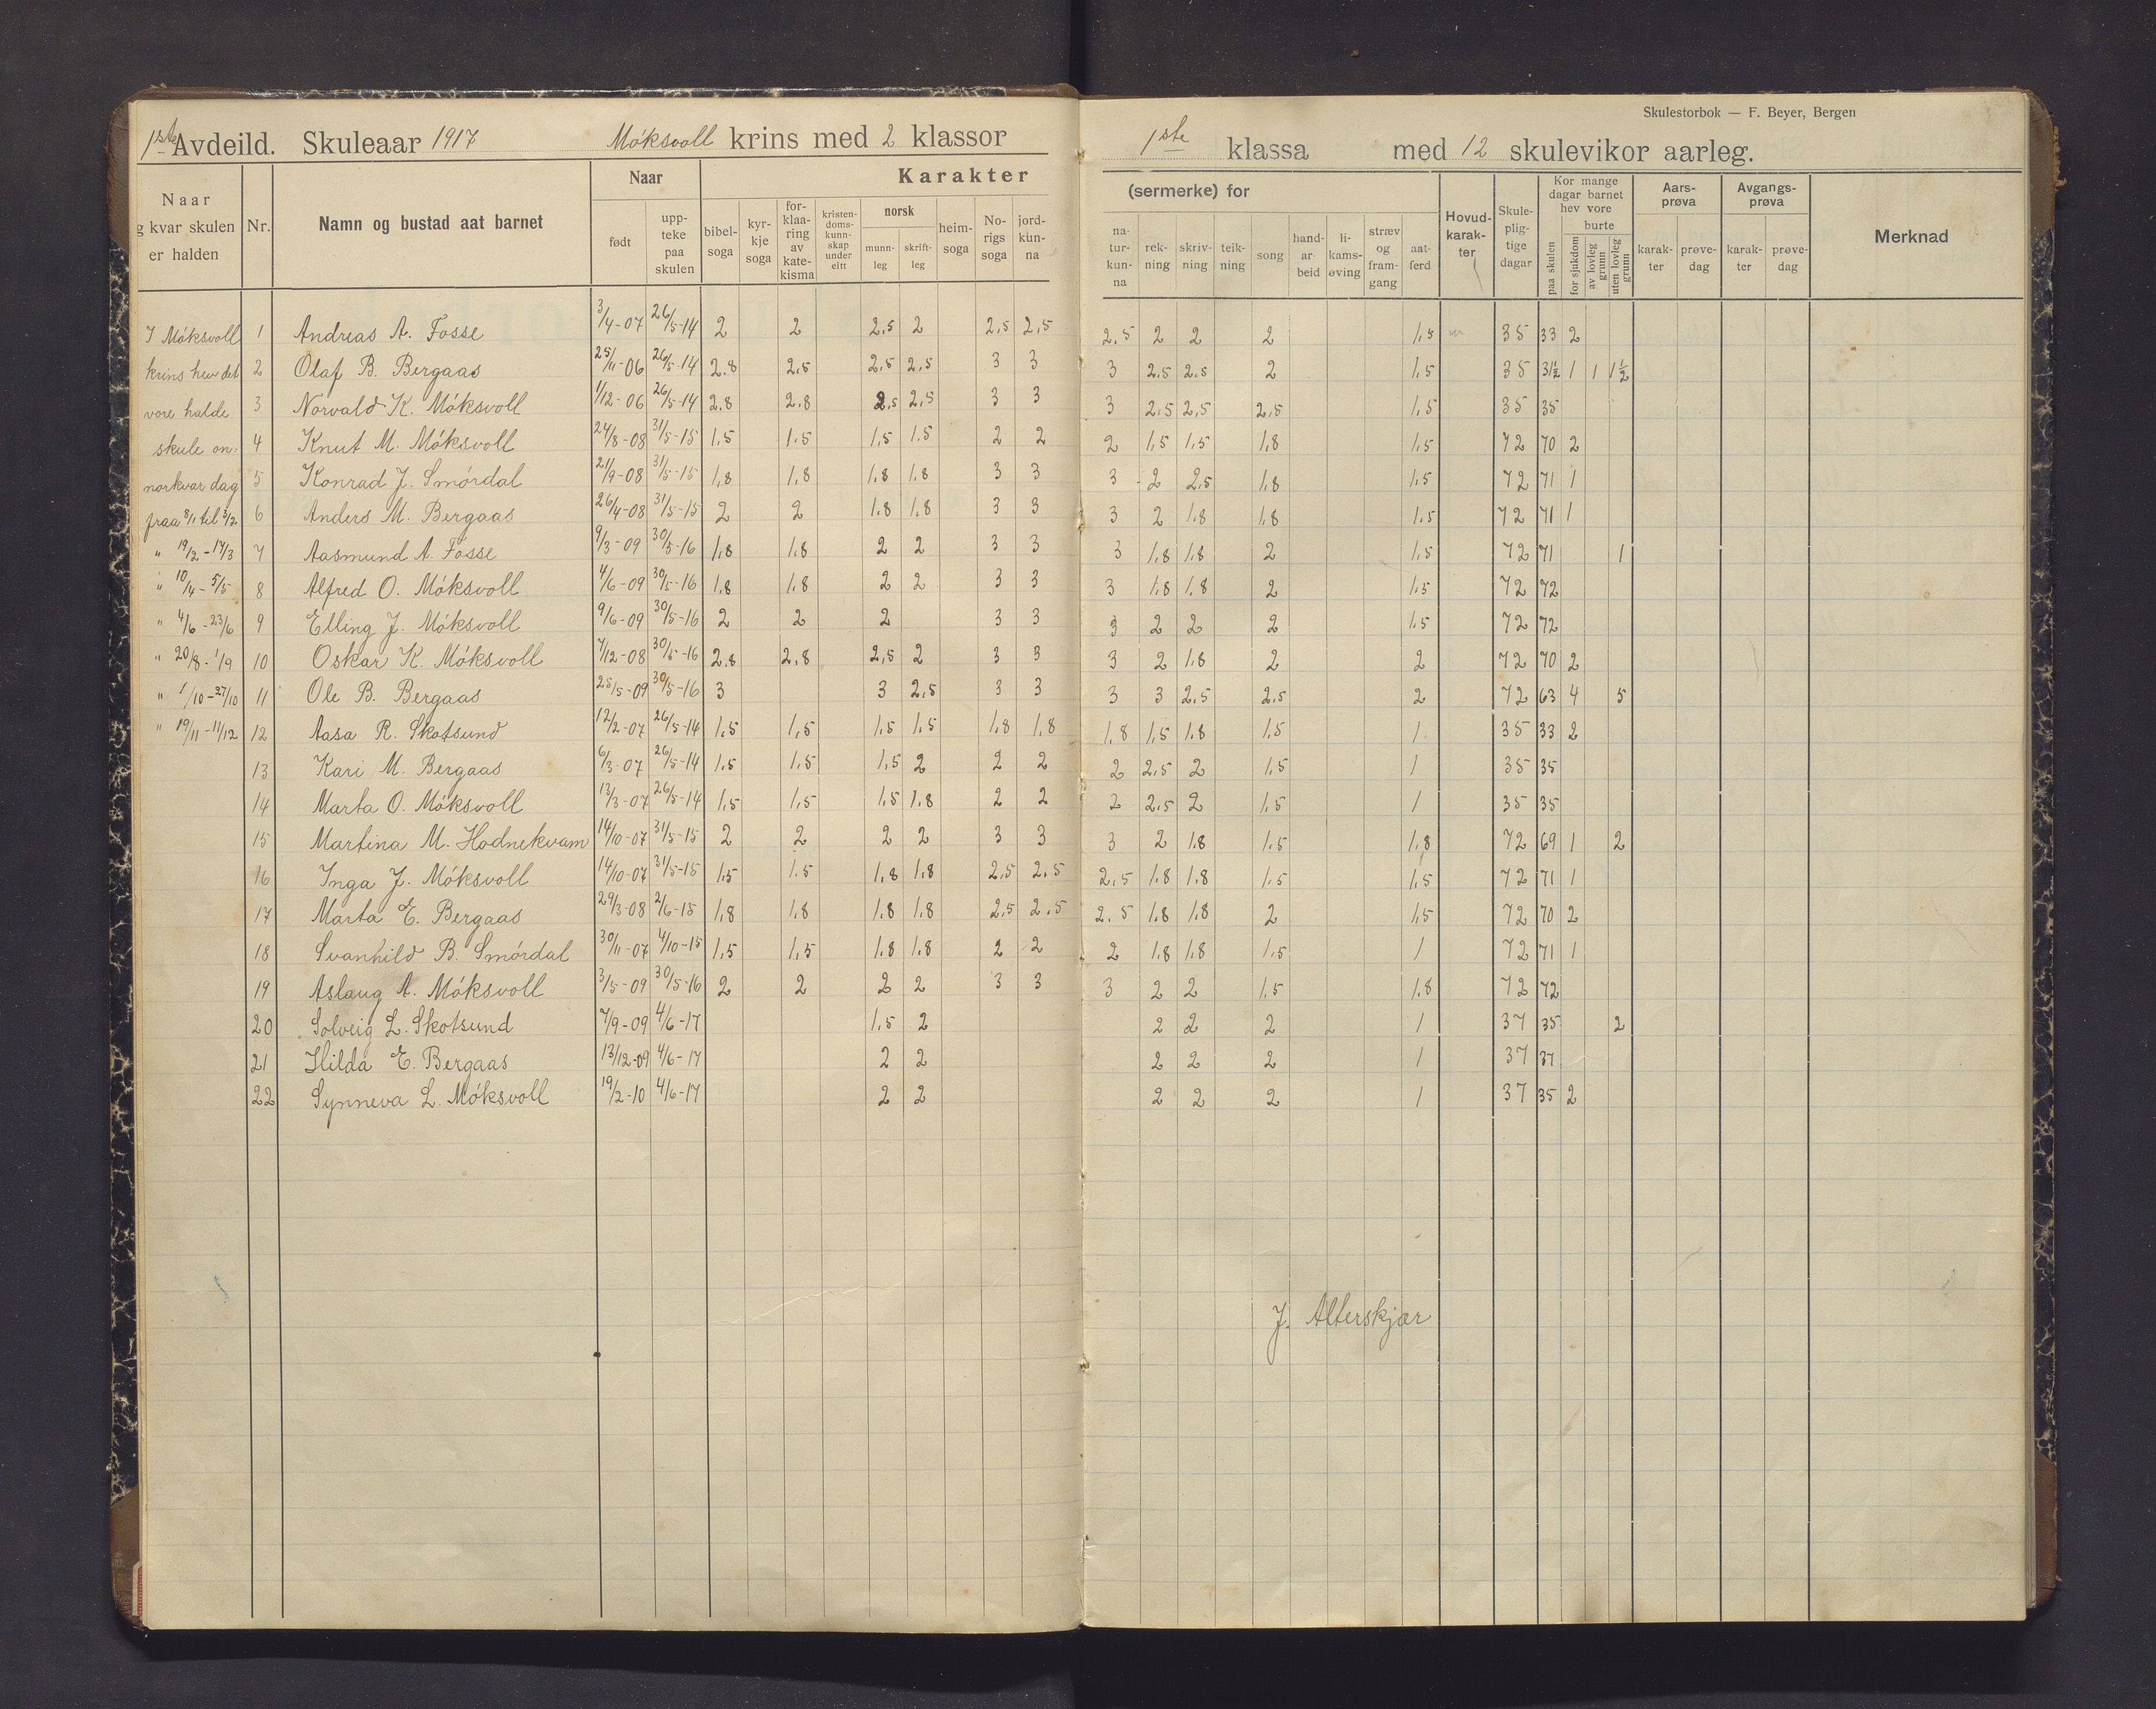 Skulestorbok — F. Beyer, Bergen
1ste Avdeild. Skuleaar 1917 Móksvoll krins med 2 klassor
1ste klassa med 12 skulevikor aarleg.
Naar g kvar skulen er halden
Nr.
Namn og bustad aat barnet
Naar
født
upp-teke paa skulen
Karakter
bibel-soga
kyr-kje soga
for-klaa-ring av kate-kisma
kristen-doms-kunn-skap under eitt
norsk
munn-leg
skrift-leg
heim-soga
No-rigs soga
jord-kun-na
(sermerke) for
na-tur-kun-na
rek-ning
skriv-ning
teik-ning
song
hand-ar-beid
li-kams-øving
stræv og fram-gang
aat-ferd
Hovud-karak-ter
Skule-plig-tige dagar
Kor mange dagar barnet hev vore
paa skulen
burte
for sjukdom
av lovleg grunn
uten lovleg grunn
Aars-prøva
karak-ter
prøve-dag
Avgangs-prøva
karak-ter
prøve-dag
Merknad
I Móksvoll 1 Andreas A. Fosse 3/4-07 26/5-14 2 2 2,5 2 2,5 2,5 2,5 2 2 2 1,5 35 33 2
krins hev det 2 Olaf B. Bergaas 25/11-06 26/5-14 2.8 2,5 2,5 2,5 3 3 3 2.5 2.5 2 1,5 35 31½ 1 1 1½
vore halde 3 Norvald K. Móksvoll 1/12-06 26/5-14 2.8 2,8 2,5 2,5 3 3 3 2,5 2,5 2,5 1,5 35 35
skule an- 4 Knut M. Móksvoll 24/8-08 31/5-15 1,5 1,5 1,5 1,5 2 2 2 1,5 1,5 1,8 1,5 72 70 2
norkvar dag 5 Konrad J. Smórdal 21/9-08 31/5-15 1,8 1,8 1,8 1,8 3 3 3 2 2,5 1,8 1,5 72 71 1
fraa 8/1 til 3/2 6 Anders M. Bergaas 26/4-08 31/5-15 2 2 1,8 1,8 3 3 3 2 1,8 1,8 1,5 72 71 1
" 19/2-17/3 7 Aasmund A. Fosse 9/3-09 30/5-16 1,8 1,8 2 2 3 3 3 1,8 1,8 2 1,5 72 71 1
" 10/4-5/5 8 Alfred O. Móksvoll 4/6-09 30/5-16 1,8 1,8 2 2 3 3 3 1,8 1,8 2 1,5 72 72
" 4/6-23/6 9 Elling J. Móksvoll 9/6-09 30/5-16 2 2 2 3 3 3 2 2 2 1,5 72 72
" 20/8-1/9 10 Oskar K. Móksvoll 7/12-08 30/5-16 2,8 2,8 2,5 2 3 3 3 2 1,8 2 2 72 70 2
" 1/10-27/10 11 Ole B. Bergaas 25/5-09 30/5-16 3 3 2,5 3 3 3 3 2,5 2,5 2 72 63 4 5
" 19/11-11/12 12 Aasa R. Skotsund 12/2-07 26/5-14 1,5 1,5 1,5 1,5 1,8 1,8 1,8 1,5 1,8 1,5 1 35 33 2
13 Kari M. Bergaas 6/3-07 26/5-14 1,5 1,5 1,5 2 2 2 2 2,5 2 1,5 1 35 35
14 Marta O. Móksvoll 13/3-07 26/5-14 1,5 1,5 1,5 1,8 2 2 2 2,5 2 1,5 1 35 35
15 Martina M. Hodnekvam 14/10-07 31/5-15 2 2 2 2 3 3 3 2 1,8 1,5 1,8 72 69 1 2
16 Inga J. Móksvoll 14/10-07 31/5-15 1,5 1,5 1,8 1,8 2,5 2,5 2,5 1,8 1,8 1,5 1,5 72 71 1
17 Marta E. Bergaas 29/3-08 2/6-15 1,8 1,8 1,8 1,8 2,5 2,5 2,5 1,8 1,8 2 1,5 72 70 2
18 Svanhild B. Smórdal 30/11-07 4/10-15 1,5 1,5 1,8 1,8 2 2 2 1,8 1,8 1,5 1 72 71 1
19 Aslaug A. Móksvoll 3/5-09 30/5-16 2 2 2 2 3 3 3 2 2 1,5 1,8 72 72
20 Solveig L. Skotsund 7/9-09 4/6-17 1,5 2 2 2 2 1 37 35 2
21 Hilda E. Bergaas 13/12-09 4/6-17 2 2 2 2 2 1 37 37
22 Synneva L. Móksvoll 19/2-10 4/6-17 2 2 2 2 2 1 37 35 2
J. Alterskjær